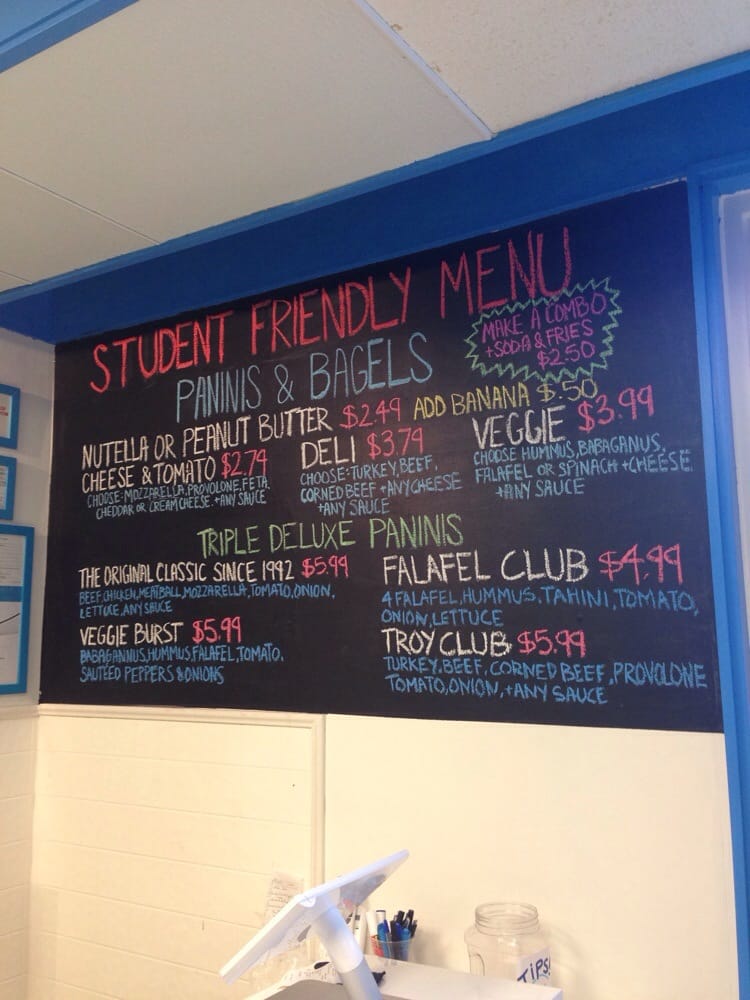 STUDENT FRIENDLY MENU
MAKE A COMBO
+SODA & FRIES
$2.50
PANINIS & BAGELS
NUTELLA OR PEANUT BUTTER $2.49 ADD BANANA $.50
CHEESE & TOMATO $2.79
CHOOSE: MOZZARELLA, PROVOLONE, FETA,
CHEDDAR OR CREAM CHEESE. +ANY SAUCE
DELI $3.79
CHOOSE: TURKEY, BEEF,
CORNED BEEF +ANY CHEESE
+ANY SAUCE
VEGGIE $3.99
CHOOSE HUMMUS, BABAGANUS,
FALAFEL OR SPINACH +CHEESE
+ANY SAUCE
TRIPLE DELUXE PANINIS
THE ORIGINAL CLASSIC SINCE 1992 $5.99
BEEF, CHICKEN, MEATBALL, MOZZARELLA, TOMATO, ONION,
LETTUCE, ANY SAUCE
VEGGIE BURST $5.99
BABAGANNUS, HUMMUS, FALAFEL, TOMATO,
SAUTEED PEPPERS & ONIONS
FALAFEL CLUB $4.99
4 FALAFEL, HUMMUS, TAHINI, TOMATO,
ONION, LETTUCE
TROY CLUB $5.99
TURKEY, BEEF, CORNED BEEF, PROVOLONE
TOMATO, ONION, +ANY SAUCE
TIPS!